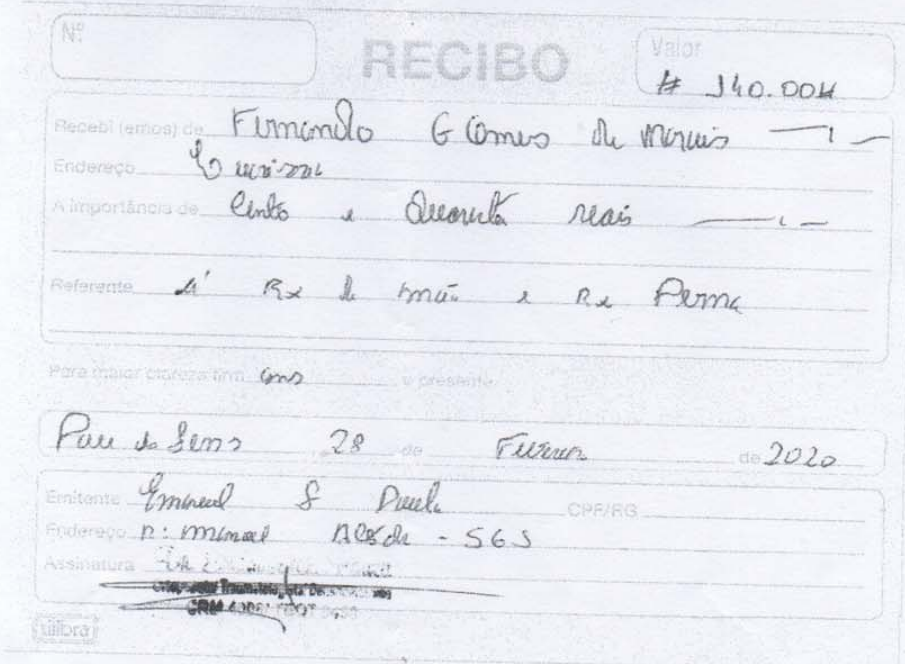 Nº
RECIBO
Valor
# 140.00 #
Recebi (emos) de Fernando Gomes de Morais
Endereço
A importância de Cento e Quarenta reais
Referente à Rx de mão e Rx Perna
Para maior clareza firm amos o presente
Pau dos Ferros 28 de Fevereiro de 2020
Emitente Emanuel S Paula CPF/RG
Endereço R: Manoel - 565
Assinatura
CRM
tilibra